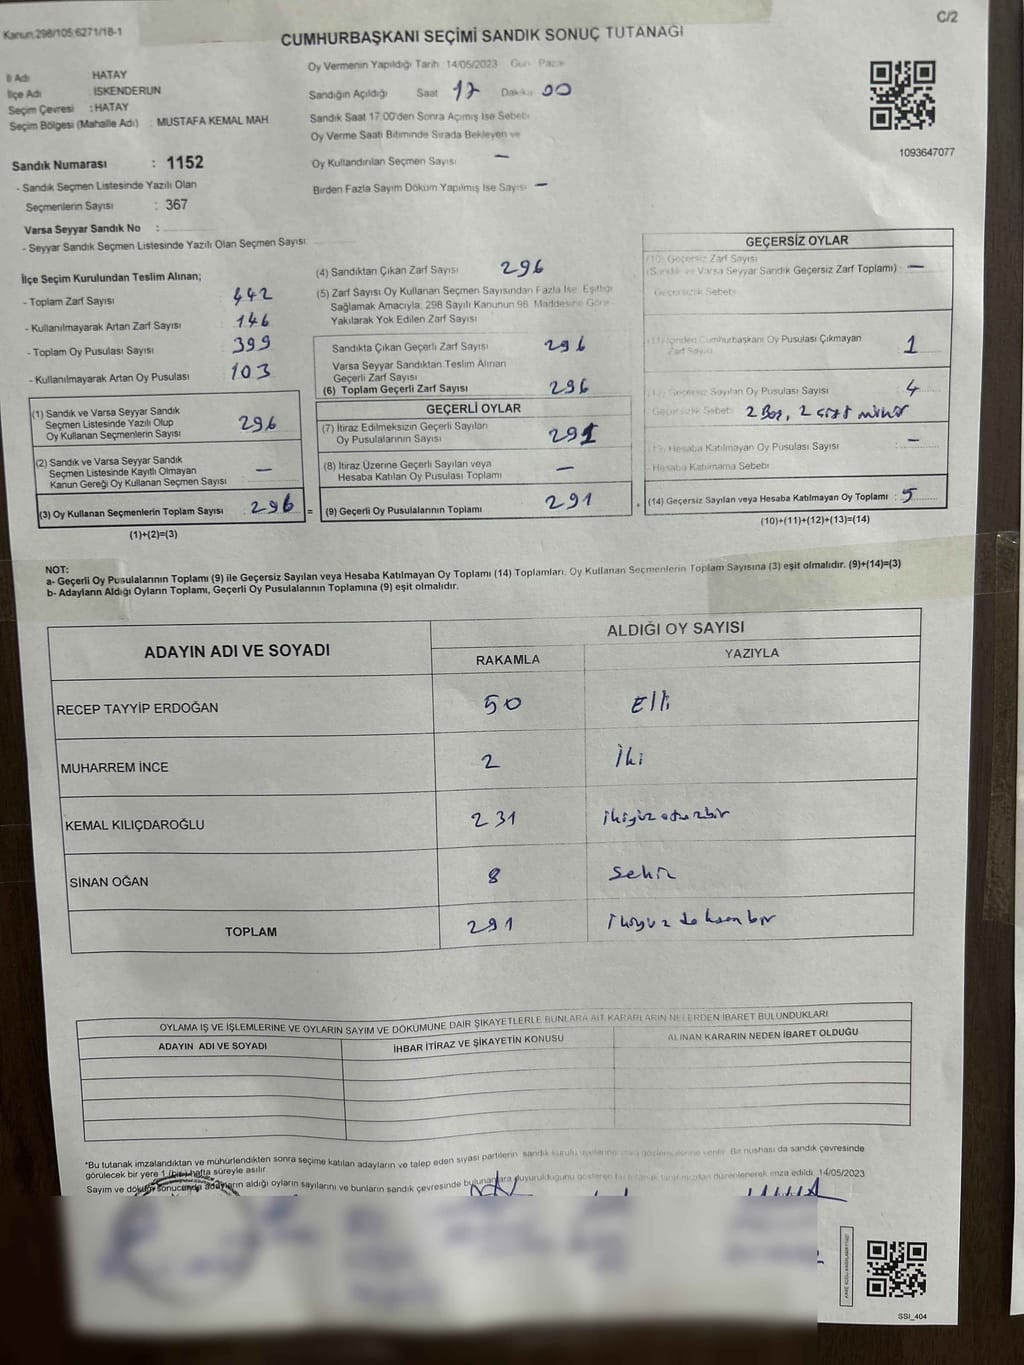 Kanun:298/105;6271/18-1
C/2
CUMHURBAŞKANI SEÇİMİ SANDIK SONUÇ TUTANAĞI
İl Adı HATAY
İlçe Adı İSKENDERUN
Seçim Çevresi : HATAY
Seçim Bölgesi (Mahalle Adı) MUSTAFA KEMAL MAH
Sandık Numarası : 1152
- Sandık Seçmen Listesinde Yazılı Olan
Seçmenlerin Sayısı : 367
Varsa Seyyar Sandık No :
- Seyyar Sandık Seçmen Listesinde Yazılı Olan Seçmen Sayısı
Oy Vermenin Yapıldığı Tarih 14/05/2023 Gün Pazar
Sandığın Açıldığı Saat 17 Dakika 00
Sandık Saat 17:00'den Sonra Açımış İse Sebebi
Oy Verme Saati Bitiminde Sırada Bekleyen ve
Oy Kullandırılan Seçmen Sayısı —
Birden Fazla Sayım Döküm Yapılmış İse Sayısı —
1093647077
İlçe Seçim Kurulundan Teslim Alınan;
- Toplam Zarf Sayısı 442
- Kullanılmayarak Artan Zarf Sayısı 146
- Toplam Oy Pusulası Sayısı 399
- Kullanılmayarak Artan Oy Pusulası 103
(1) Sandık ve Varsa Seyyar Sandık
Seçmen Listesinde Yazılı Olup
Oy Kullanan Seçmenlerin Sayısı 296
(2) Sandık ve Varsa Seyyar Sandık
Seçmen Listesinde Kayıtlı Olmayan
Kanun Gereği Oy Kullanan Seçmen Sayısı —
(3) Oy Kullanan Seçmenlerin Toplam Sayısı 296 =
(1)+(2)=(3)
(4) Sandıktan Çıkan Zarf Sayısı 296
(5) Zarf Sayısı Oy Kullanan Seçmen Sayısından Fazla İse, Eşitliği
Sağlamak Amacıyla, 298 Sayılı Kanunun 98. Maddesine Göre
Yakılarak Yok Edilen Zarf Sayısı
Sandıkta Çıkan Geçerli Zarf Sayısı 296
Varsa Seyyar Sandıktan Teslim Alınan
Geçerli Zarf Sayısı
(6) Toplam Geçerli Zarf Sayısı 296
GEÇERLİ OYLAR
(7) İtiraz Edilmeksizin Geçerli Sayılan
Oy Pusulalarının Sayısı 291
(8) İtiraz Üzerine Geçerli Sayılan veya
Hesaba Katılan Oy Pusulası Toplamı —
(9) Geçerli Oy Pusulalarının Toplamı 291
GEÇERSİZ OYLAR
(10) Geçersiz Zarf Sayısı
(Sandık ve Varsa Seyyar Sandık Geçersiz Zarf Toplamı) —
Geçersizlik Sebebi
(11) İçinden Cumhurbaşkanı Oy Pusulası Çıkmayan
Zarf Sayısı 1
(12) Geçersiz Sayılan Oy Pusulası Sayısı 4
Geçersizlik Sebebi 2 Boş, 2
(13) Hesaba Katılmayan Oy Pusulası Sayısı —
Hesaba Katılmama Sebebi
(14) Geçersiz Sayılan veya Hesaba Katılmayan Oy Toplamı : 5
(10)+(11)+(12)+(13)=(14)
NOT:
a- Geçerli Oy Pusulalarının Toplamı (9) ile Geçersiz Sayılan veya Hesaba Katılmayan Oy Toplamı (14) Toplamları, Oy Kullanan Seçmenlerin Toplam Sayısına (3) eşit olmalıdır. (9)+(14)=(3)
b- Adayların Aldığı Oyların Toplamı, Geçerli Oy Pusulalarının Toplamına (9) eşit olmalıdır.
ADAYIN ADI VE SOYADI
ALDIĞI OY SAYISI
RAKAMLA YAZIYLA
RECEP TAYYİP ERDOĞAN 50 Elli
MUHARREM İNCE 2 İki
KEMAL KILIÇDAROĞLU 231 ikiyüz otuzbir
SİNAN OĞAN 8 Sekiz
TOPLAM 291 ikiyüz doksan bir
OYLAMA İŞ VE İŞLEMLERİNE VE OYLARIN SAYIM VE DÖKÜMÜNE DAİR ŞİKAYETLERLE BUNLARA AİT KARARLARIN NELERDEN İBARET BULUNDUKLARI
ADAYIN ADI VE SOYADI İHBAR İTİRAZ VE ŞİKAYETİN KONUSU ALINAN KARARIN NEDEN İBARET OLDUĞU
*Bu tutanak imzalandıktan ve mühürlendikten sonra seçime katılan adayların ve talep eden siyasi partilerin sandık kurulu verilir. Bir nüshası da sandık çevresinde
görülecek bir yere 1 (bir) hafta süreyle asılır.
Sayım ve döküm sonucunda adayların aldığı oyların sayılarını ve bunların sandık çevresinde bulunanlara duyurulduğunu gösteren düzenlenerek imza edildi. 14/05/2023
SSİ_404